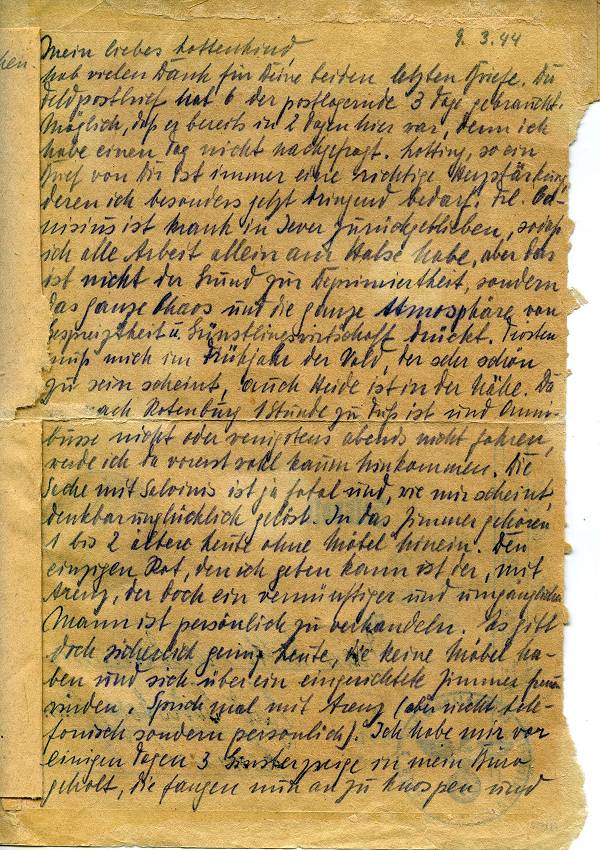 9.3.44
hen.
Mein liebes Lottenkind,
hab vielen Dank für Deine beiden letzten Briefe. Der
Feldpostbrief hat 6 der postlagernde 3 Tage gebraucht.
Möglich, daß er bereits in 2 Tagen hier war, denn ich
habe einen Tag nicht nachgefragt. Lotting, so ein
Brief von Dir ist immer eine richtige Herzstärkung,
deren ich besonders jetzt dringend bedarf. Frl. Ca-
nisius ist krank in Jever zurückgeblieben, sodaß
ich alle Arbeit allein am Halse habe, aber das
ist nicht der Grund zur Deprimiertheit, sondern
das ganze Chaos und die ganze Atmosphäre von
Gespreiztheit u. Günstlingswirtschaft drückt. Trösten
muß mich im Frühjahr der Wald, der sehr schön
zu sein scheint, auch Heide ist in der Nähe. Da
nach Rotenburg 1 Stunde zu Fuß ist und Omni-
busse nicht oder wenigstens abends nicht fahren,
werde ich da vorerst wohl kaum hinkommen. Die
Sache mit ist ja fatal und, wie mir scheint,
denkbar unglücklich gelöst. In das Zimmer gehören
1 bis 2 ältere Leute ohne Möbel hinein. Den
einzigen Rat, den ich geben kann ist der, mit
Arenz, der doch ein vernünftiger und umgänglicher
Mann ist persönlich zu verhandeln. Es gibt
doch sicherlich genug Leute, die keine Möbel ha-
ben und sich über ein eingerichtetes Zimmer freuen
würden. Sprich mal mit Arenz (aber nicht tele-
fonisch sondern persönlich). Ich habe mir vor
einigen Tagen 3 Ginsterzweige in mein Büro
geholt, die fangen nun an zu knospen und